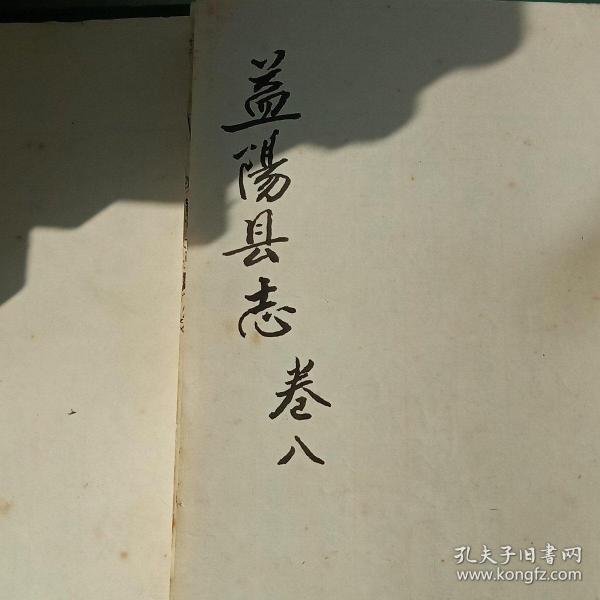 益陽县志
卷八
孔夫子旧書网
www.kongfz.com